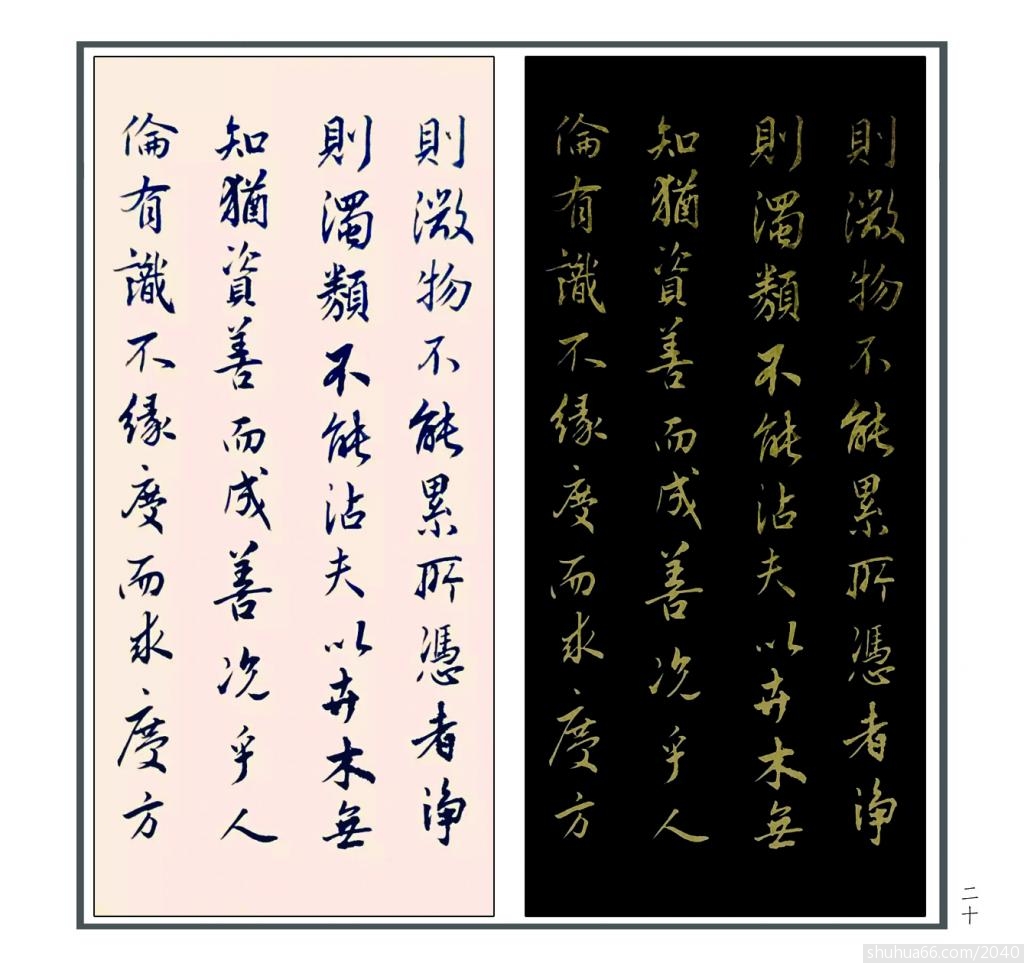 則微物不能累所憑者淨
則濁類不能沾夫以卉木無
知猶資善而成善况乎人
倫有識不緣慶而求慶方
則微物不能累所憑者淨
則濁類不能沾夫以卉木無
知猶資善而成善况乎人
倫有識不緣慶而求慶方
二十
shuhua66.com/2040